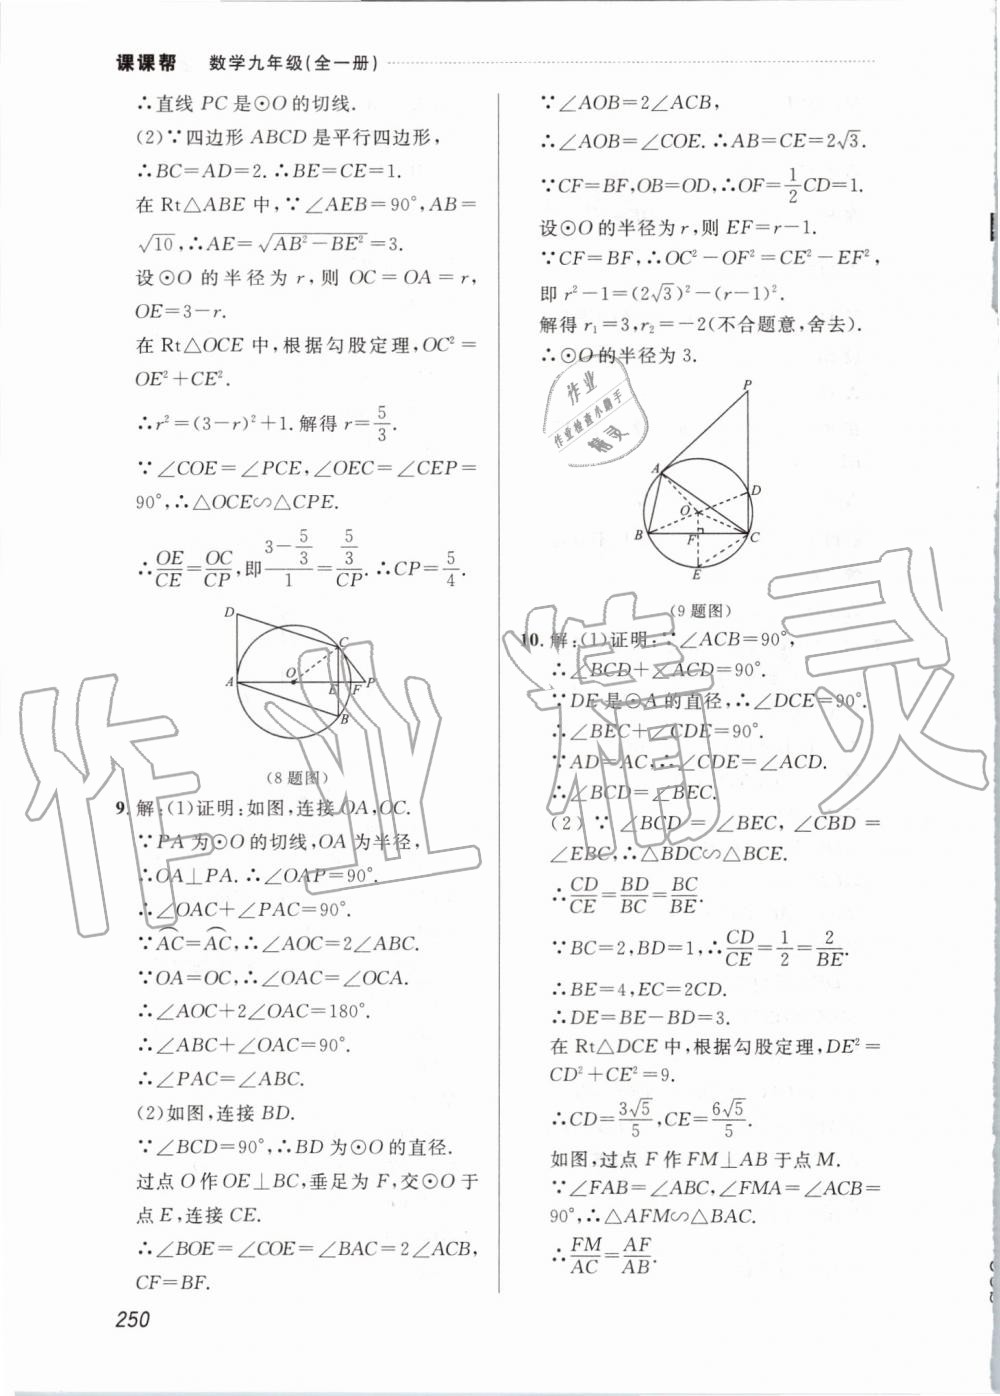 课课帮 数学九年级(全一册)
∴直线 PC 是⊙O 的切线.
(2)∵四边形 ABCD 是平行四边形,
∴BC=AD=2.∴BE=CE=1.
在 Rt△ABE 中,∵∠AEB=90°,AB=
√10,∴AE=√(AB²-BE²)=3.
设⊙O 的半径为 r,则 OC=OA=r,
OE=3-r.
在 Rt△OCE 中,根据勾股定理,OC²=
OE²+CE².
∴r²=(3-r)²+1.解得 r=5/3.
∵∠COE=∠PCE,∠OEC=∠CEP=
90°,∴△OCE∽△CPE.
∴OE/CE=OC/CP,即(3-5/3)/1=(5/3)/CP.∴CP=5/4.
D
C
A
O
E
F
P
B
(8题图)
9.解:(1)证明:如图,连接OA,OC.
∵PA 为⊙O 的切线,OA 为半径,
∴OA⊥PA.∴∠OAP=90°.
∴∠OAC+∠PAC=90°.
∵A͡C=A͡C,∴∠AOC=2∠ABC.
∵OA=OC,∴∠OAC=∠OCA.
∴∠AOC+2∠OAC=180°.
∴∠ABC+∠OAC=90°.
∴∠PAC=∠ABC.
(2)如图,连接 BD.
∵∠BCD=90°,∴BD 为⊙O 的直径.
过点 O 作 OE⊥BC,垂足为 F,交⊙O 于
点 E,连接 CE.
∴∠BOE=∠COE=∠BAC=2∠ACB,
CF=BF.
250
∵∠AOB=2∠ACB,
∴∠AOB=∠COE.∴AB=CE=2√3.
∵CF=BF,OB=OD,∴OF=1/2CD=1.
设⊙O 的半径为 r,则 EF=r-1.
∵CF=BF,∴OC²-OF²=CE²-EF²,
即 r²-1=(2√3)²-(r-1)².
解得 r₁=3,r₂=-2(不合题意,舍去).
∴⊙O 的半径为 3.
作业
作业检查小助手
精灵
P
A
D
O
B
F
C
E
(9题图)
10.解:(1)证明:∵∠ACB=90°,
∴∠BCD+∠ACD=90°.
∵DE 是⊙A 的直径,∴∠DCE=90°.
∴∠BEC+∠CDE=90°.
∵AD=AC,∴∠CDE=∠ACD.
∴∠BCD=∠BEC.
(2)∵∠BCD=∠BEC,∠CBD=
∠EBC,∴△BDC∽△BCE.
∴CD/CE=BD/BC=BC/BE.
∵BC=2,BD=1,∴CD/CE=1/2=2/BE.
∴BE=4,EC=2CD.
∴DE=BE-BD=3.
在 Rt△DCE 中,根据勾股定理,DE²=
CD²+CE²=9.
∴CD=3√5/5,CE=6√5/5.
如图,过点 F 作 FM⊥AB 于点 M.
∵∠FAB=∠ABC,∠FMA=∠ACB=
90°,∴△AFM∽△BAC.
∴FM/AC=AF/AB.
作业精灵